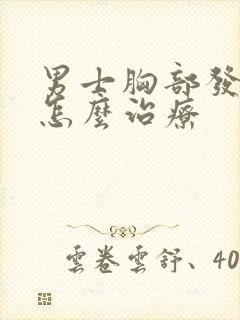 男士胸部發
怎麼治療
雲卷雲舒、40